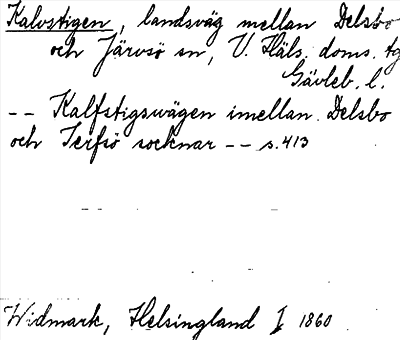 Kalvstigen, landsväg mellan Delsbo
och Järvsö sn, V. Häls. doms. tg
Gävleb. l.
-- Kalfstigswägen imellan Delsbo
och Jerfsö socknar -- s. 413
Widmark, Helsingland I 1860